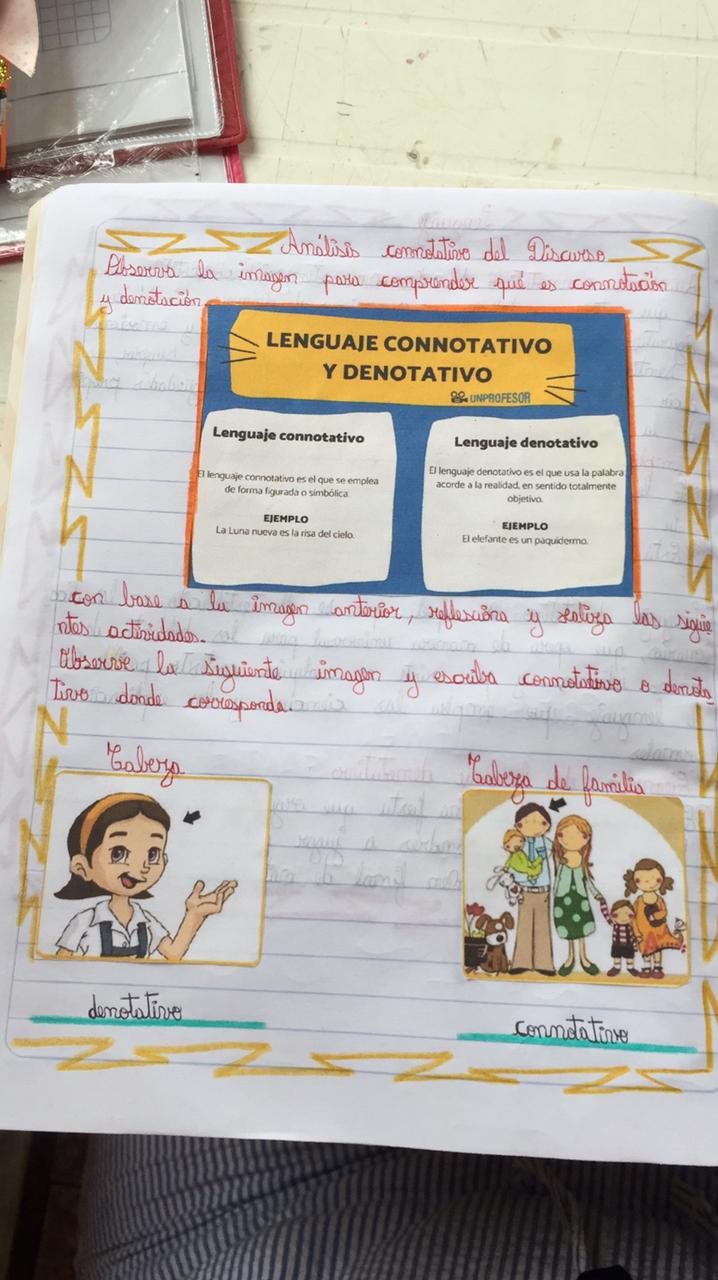 Análisis connotativo del Discurso
Observa la imagen para comprender qué es connotación
y denotación
LENGUAJE CONNOTATIVO
Y DENOTATIVO
UNPROFESOR
Lenguaje connotativo
El lenguaje connotativo es el que se emplea
de forma figurada o simbólica.
EJEMPLO
La Luna nueva es la risa del cielo.
Lenguaje denotativo
El lenguaje denotativo es el que usa la palabra
acorde a la realidad, en sentido totalmente
objetivo.
EJEMPLO
El elefante es un paquidermo.
con base a la imagen anterior, reflexiona y realiza las siguie
ntes actividades.
Observe la siguiente imagen y escriba connotativo o denota
tivo donde corresponda.
Cabeza
Cabeza de familia
denotativo
connotativo